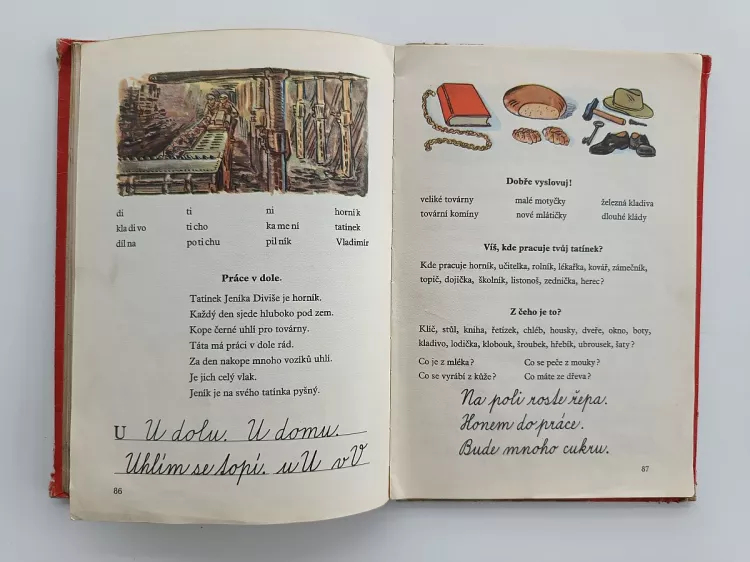 di ti ni horník
kladivo ticho kamení tatínek
dílna potichu pilník Vladimír
Práce v dole.
Tatínek Jeníka Diviše je horník.
Každý den sjede hluboko pod zem.
Kope černé uhlí pro továrny.
Táta má práci v dole rád.
Za den nakope mnoho vozíků uhlí.
Je jich celý vlak.
Jeník je na svého tatínka pyšný.
U U dolu. U domu.
Uhlím se topí. u U v V
86
Dobře vyslovuj!
veliké továrny malé motyčky železná kladiva
tovární komíny nové mlátičky dlouhé klády
Víš, kde pracuje tvůj tatínek?
Kde pracuje horník, učitelka, rolník, lékařka, kovář, zámečník,
topič, dojička, školník, listonoš, zednička, herec?
Z čeho je to?
Klíč, stůl, kniha, řetízek, chléb, housky, dveře, okno, boty,
kladivo, lodička, klobouk, šroubek, hřebík, ubrousek, šaty?
Co je z mléka? Co se peče z mouky?
Co se vyrábí z kůže? Co máte ze dřeva?
Na poli roste řepa.
Honem do práce.
Bude mnoho cukru.
87